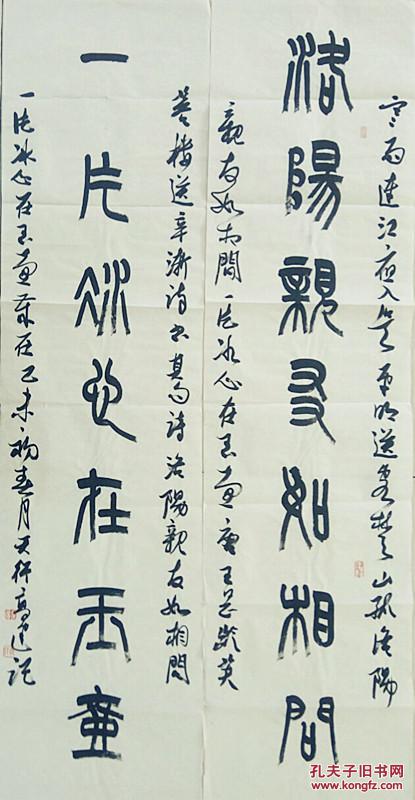 寒雨連江夜入吴平明送客楚山孤洛陽
洛陽親友如相問
親友如相問一片冰心在玉壶唐王昌龄芙
蓉楼送辛渐诗书其句诗洛陽親友如相問
一片冰心在玉壺
一片冰心在玉壶歲在己未初春月天行
孔夫子旧书网